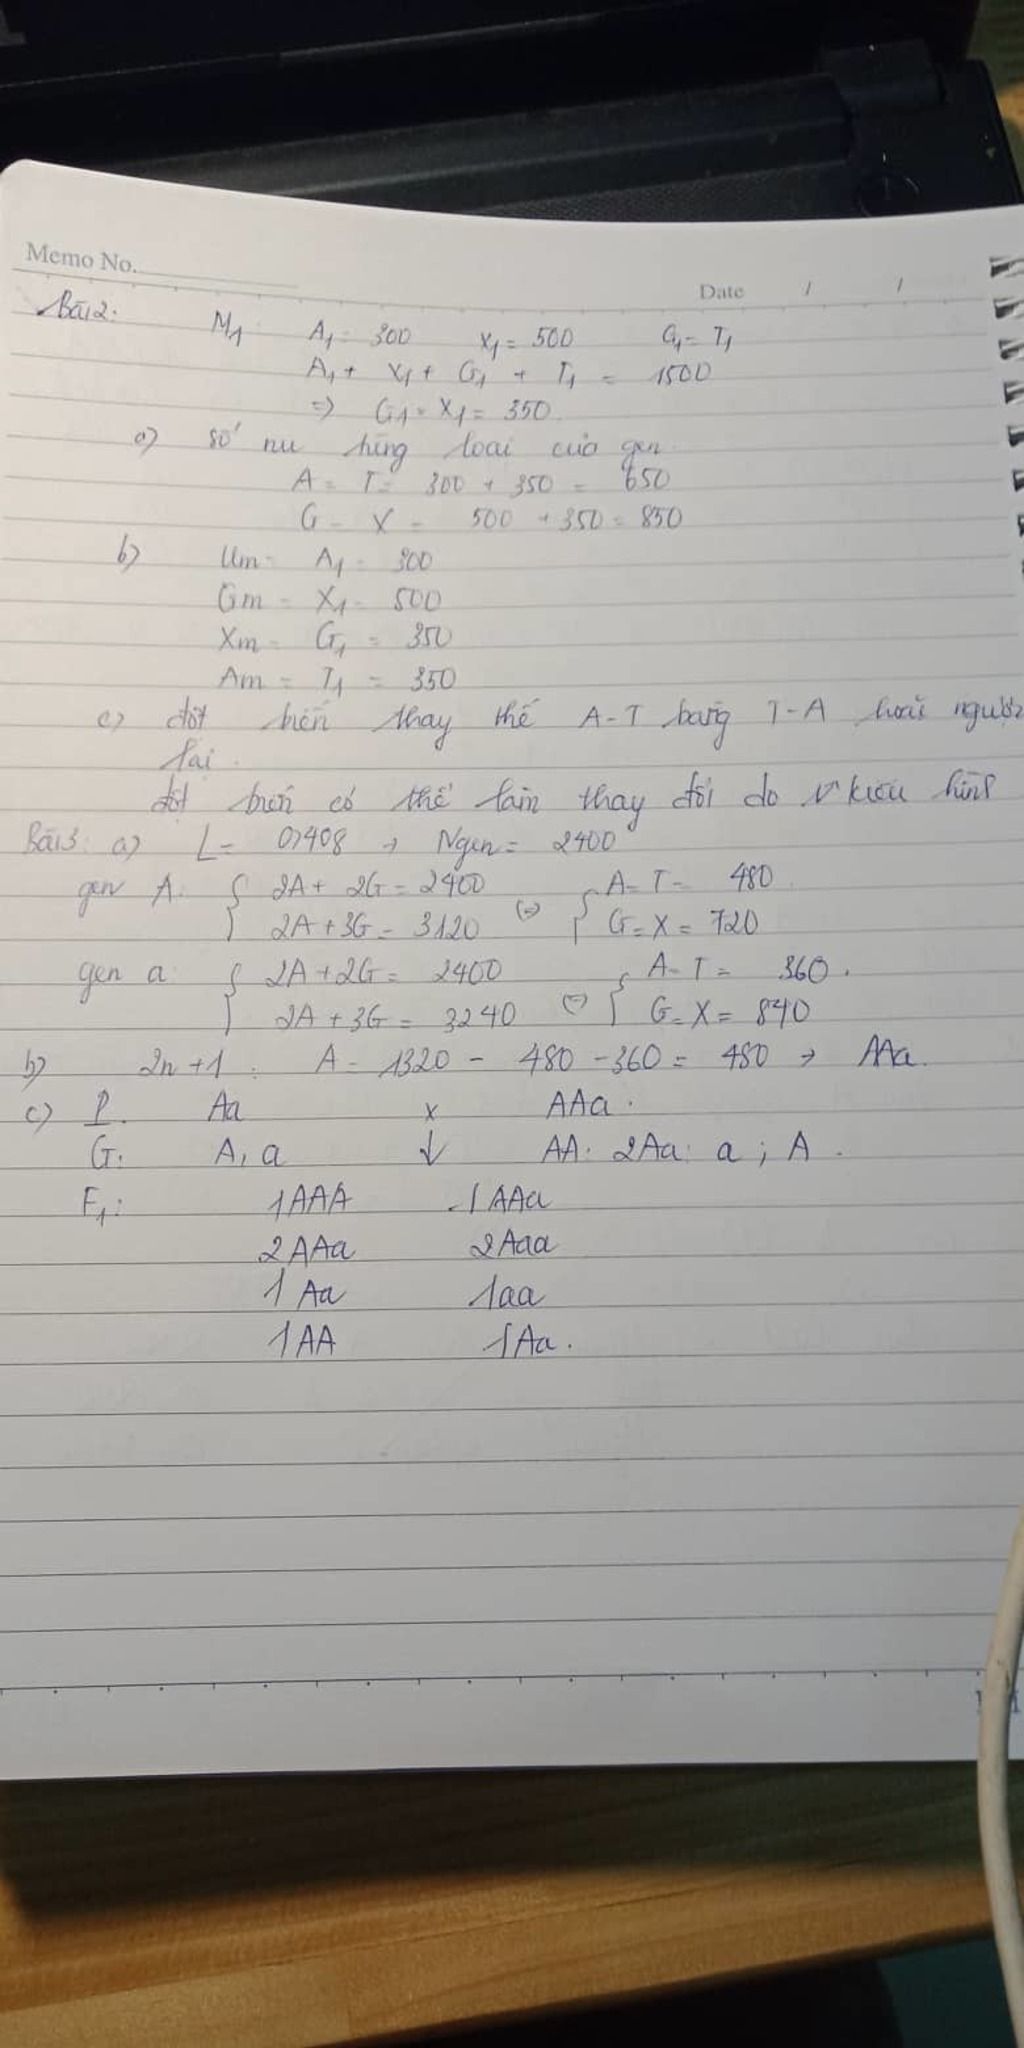 Memo No.
Date / /
Bài 2: M1: A1 = 300 X1 = 500 G1 = T1
A1 + X1 + G1 + T1 = 1500
=> G1 = X1 = 350
a) số nu từng loại của gen
A = T = 300 + 350 = 650
G = X = 500 + 350 = 850
b) Um = A1 = 300
Gm = X1 = 500
Xm = G1 = 350
Am = T1 = 350
c) đột biến thay thế A-T bằng T-A hoặc ngược
lại.
đột biến có thể làm thay đổi do kiểu hình
Bài 3: a) L = 0,408 → Ngen = 2400
gen A: { 2A + 2G = 2400 { A = T = 480
2A + 3G = 3120 (=) G = X = 720
gen a: { 2A + 2G = 2400 { A = T = 360.
2A + 3G = 3240 (=) G = X = 840
b) 2n+1: A = 1320 - 480 - 360 = 480 → AAa.
c) P. Aa x AAa.
G: A, a ↓ AA: 2Aa: a; A.
F1: 1AAA 1AAa
2AAa 2Aaa
1Aa 1aa
1AA 1Aa.